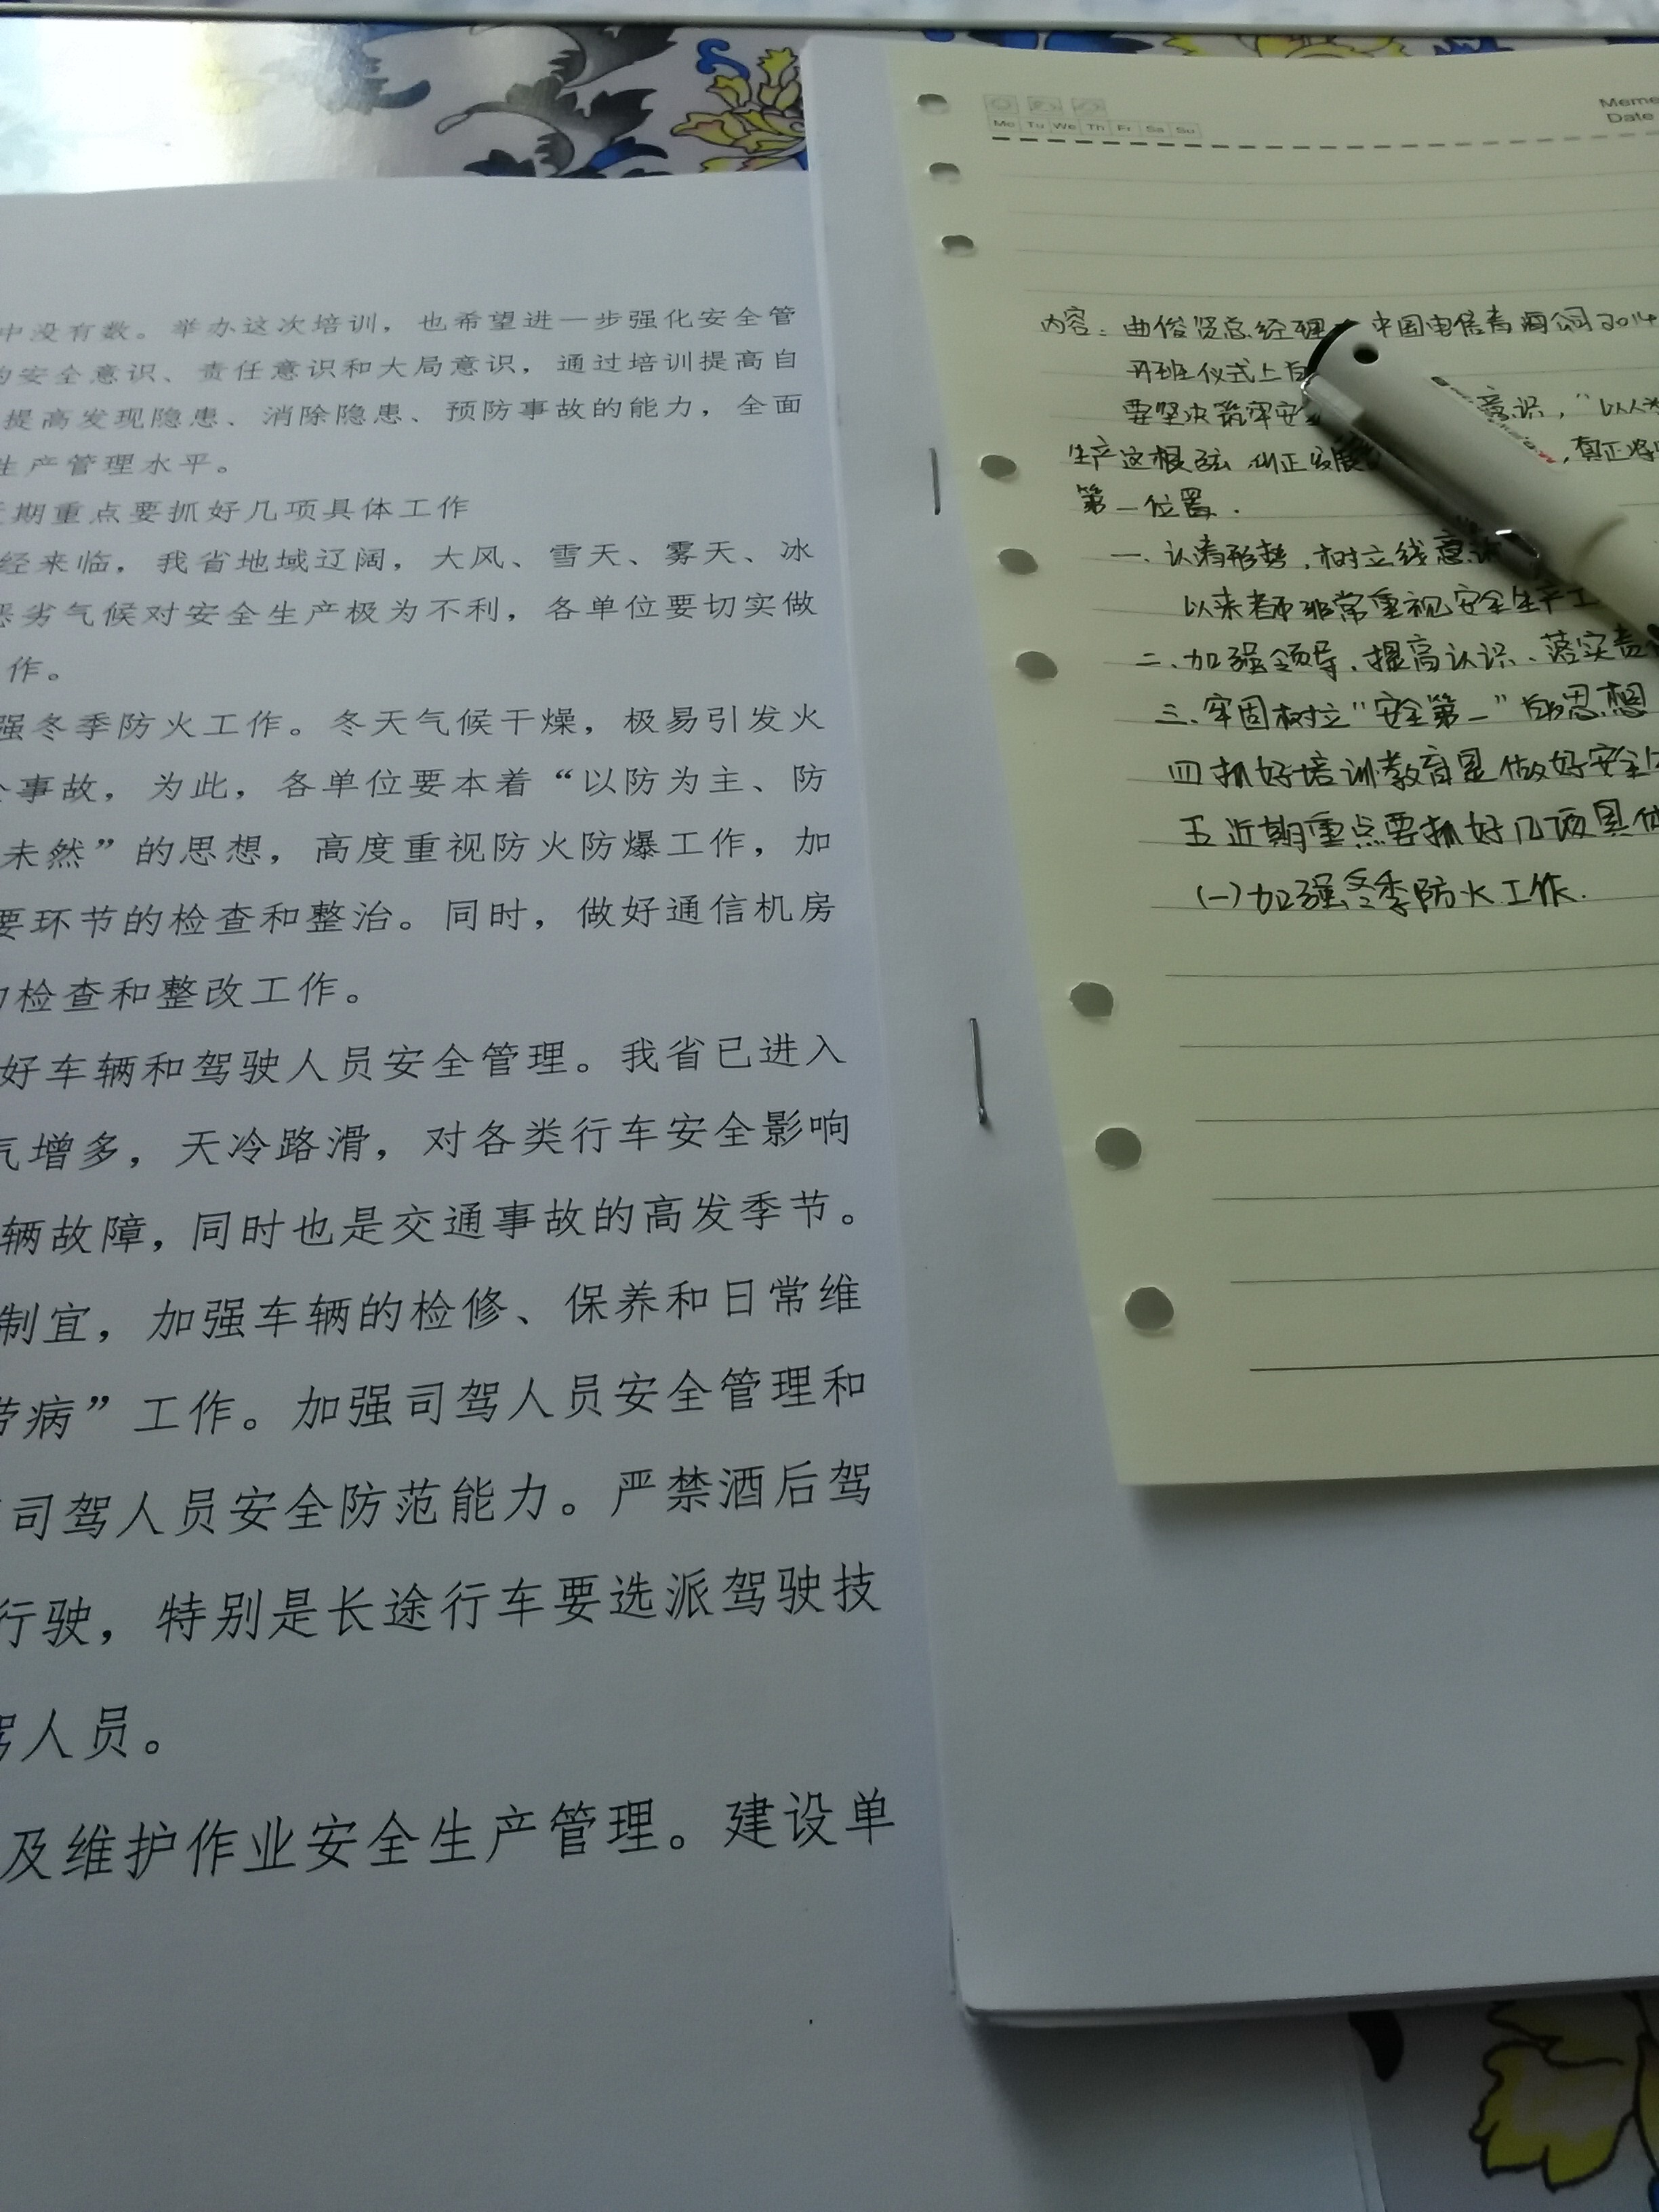 中没有数。举办这次培训，也希望进一步强化安全管
的安全意识、责任意识和大局意识，通过培训提高自
提高发现隐患、消除隐患、预防事故的能力，全面
生产管理水平。
期重点要抓好几项具体工作
经来临，我省地域辽阔，大风、雪天、雾天、冰
恶劣气候对安全生产极为不利，各单位要切实做
作。
强冬季防火工作。冬天气候干燥，极易引发火
事故，为此，各单位要本着“以防为主、防
未然”的思想，高度重视防火防爆工作，加
要环节的检查和整治。同时，做好通信机房
的检查和整改工作。
好车辆和驾驶人员安全管理。我省已进入
气增多，天冷路滑，对各类行车安全影响
辆故障，同时也是交通事故的高发季节。
制宜，加强车辆的检修、保养和日常维
带病”工作。加强司驾人员安全管理和
司驾人员安全防范能力。严禁酒后驾
行驶，特别是长途行车要选派驾驶技
驾人员。
及维护作业安全生产管理。建设单
Mo Tu We Th Fr Sa Su
Date
内容：曲俊贤总经理 中国电信青海公司2014
开班仪式上
要坚决筑牢安 意识，“以人
生产这根弦，纠正发展 ，真正将
第一位置.
一.认清形势，树立线意识
以来都非常重视安全生产工
二、加强领导、提高认识、落实责
三、牢固树立“安全第一”的思想
四 抓好培训教育是做好安全
五 近期重点要抓好几项具体
(一)加强冬季防火工作.